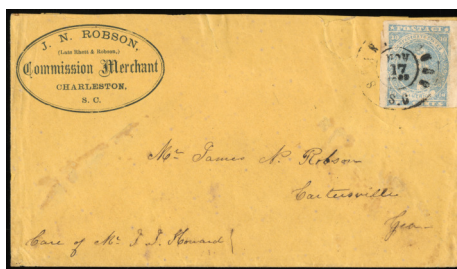 J. N. ROBSON,
(Late Rhett & Robson,)
Commission Merchant
CHARLESTON,
S. C.
POSTAGE
NOV
17
S.C
Mr James N. Robson
Cartersville
Geo
Care of Mr
Howard